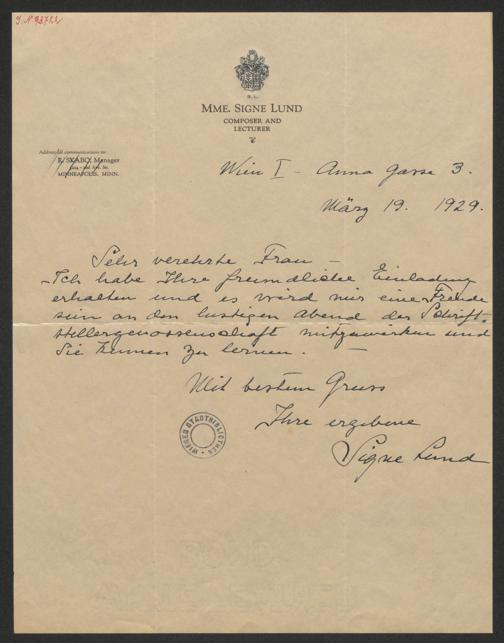 J.N. 93722
S.L.
MME. SIGNE LUND
COMPOSER AND
LECTURER
Address all communications to:
R. SKABO, Manager
2204 - 2nd Ave. So.
MINNEAPOLIS, MINN.
Wien I - Anna gasse 3.
März 19. 1929.
Sehr verehrte Frau -
Ich habe Ihre freundliche Einladung
erhalten und es wird mir eine Freude
sein an den lustigen Abend der Schrift-
stellergenossenschaft mitzuwirken und
Sie kennen zu lernen. -
Mit bestem Gruss
Ihre ergebene
Signe Lund
WIENER STADTBIBLIOTHEK